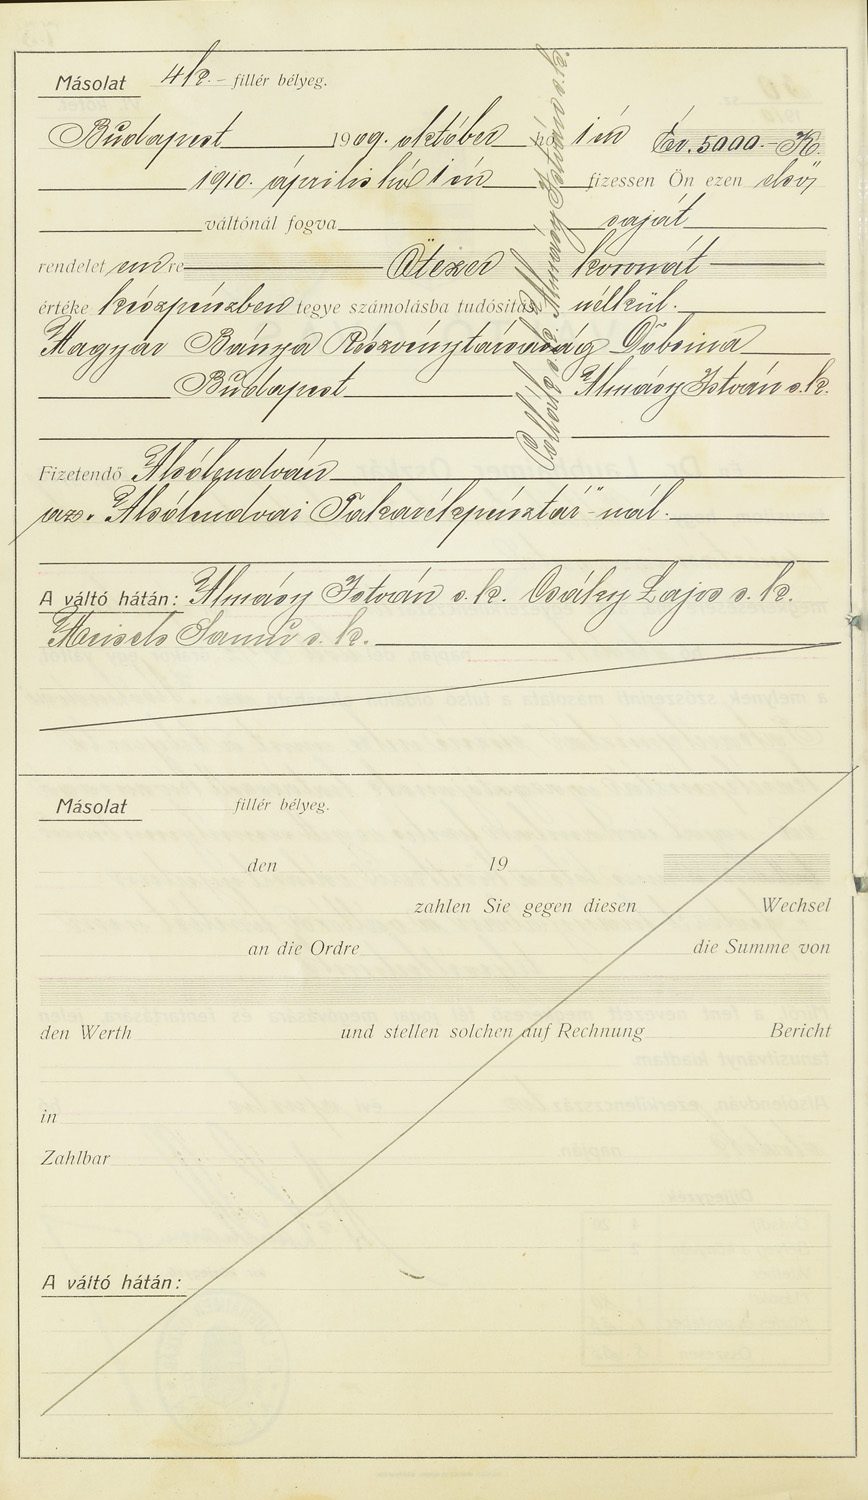 Másolat 4 k. – fillér bélyeg.
Budapest 1909. október hó 1 én Ér. 5000.– K.
1910. április hó 1 én fizessen Ön ezen első
váltónál fogva saját
rendeletemre Ötezer koronát
értéke készpénzben tegye számolásba tudósítás nélkül.
Magyar Bánya Részvénytársaság Dobsina
Budapest Almásy István s. k.
Fizetendő Alsólendván
az „Alsólendvai Takarékpénztár"-nál.
A váltó hátán: Almásy István s. k. Csáky Lajos s. k.
Samu s. k.
s. k. Almásy István s. k.
Másolat fillér bélyeg.
den 19
zahlen Sie gegen diesen Wechsel
an die Ordre die Summe von
den Werth und stellen solchen auf Rechnung Bericht
in
Zahlbar
A váltó hátán: